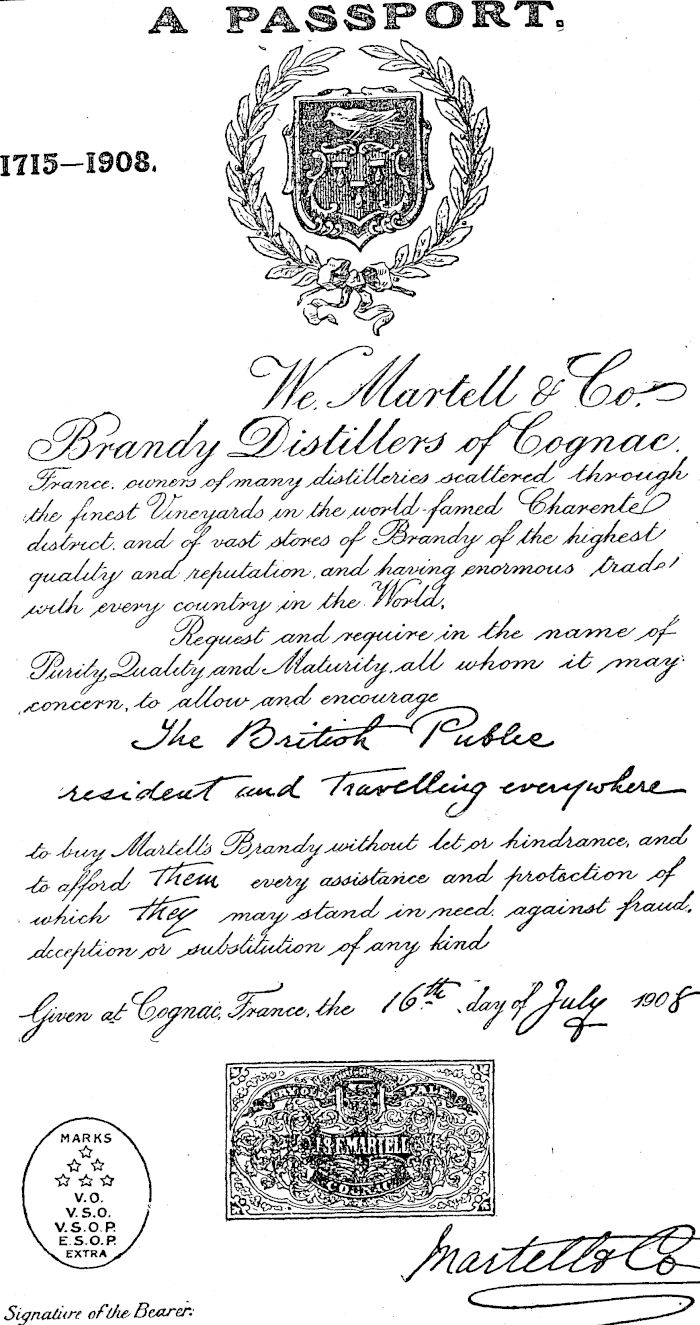 A PASSPORT.
1715—1908.
We, Martell & Co.
Brandy Distillers of Cognac,
France, owners of many distilleries scattered through
the finest Vineyards in the world-famed Charente
district, and of vast stores of Brandy of the highest
quality and reputation, and having enormous trade
with every country in the World,
Request and require in the name of
Purity, Quality and Maturity, all whom it may
concern, to allow and encourage
The British Public
resident and Travelling everywhere
to buy Martell's Brandy without let or hindrance, and
to afford them every assistance and protection of
which they may stand in need, against fraud,
deception or substitution of any kind
Given at Cognac, France, the 16th day of July 1908
VERY OLD PALE
J & F. MARTELL
COGNAC
MARKS
☆
☆ ☆
☆ ☆ ☆
V.O.
V.S.O.
V.S.O.P.
E.S.O.P.
EXTRA
Martell & Co
Signature of the Bearer: